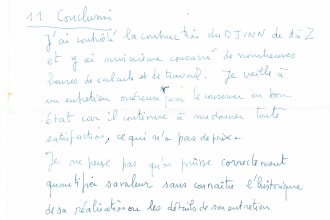 11 Conclusion
J'ai contrôlé la construction du DJINN de A à Z
et y ai moi même consacré de nombreuses
heures de calculs et de travail. Je veille à
un entretien onéreux pour le conserver en bon
état car il continue à me donner toute
satisfaction, ce qui n'a pas de prix.
Je ne pense pas qu'on puisse correctement
quantifier sa valeur sans connaître l'historique
de sa réalisation ou les détails de son entretien